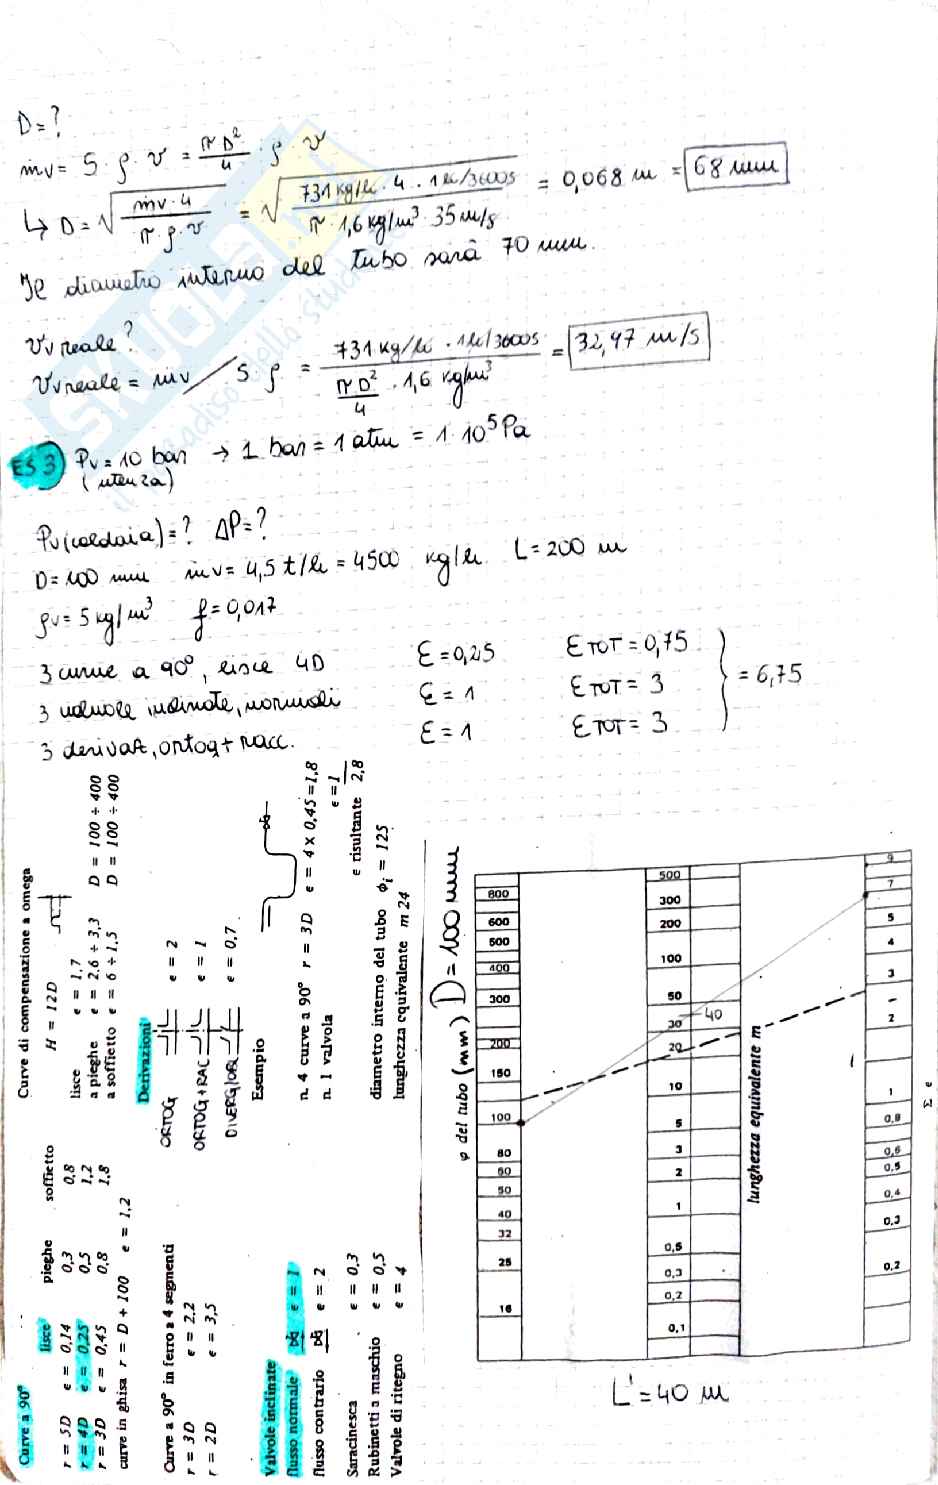 D = ?
ṁv = S · ρ · v = πD²/4 · ρ · v
↳ D = √(ṁv · 4 / π · ρ · v) = √(731 kg/h · 4 · 1h/3600s / π · 1,6 kg/m³ · 35 m/s) = 0,068 m = 68 mm
Il diametro interno del tubo sarà 70 mm.
Vv reale?
Vv reale = ṁv / S ρ = 731 kg/h · 1h/3600s / πD²/4 · 1,6 kg/m³ = 32,97 m/s
ES 3 Pv = 10 bar → 1 bar = 1 atm = 1·10⁵ Pa
(utenza)
Pv (caldaia) = ? ΔP = ?
D = 100 mm ṁv = 4,5 t/h = 4500 kg/h L = 200 m
ρv = 5 kg/m³ f = 0,017
3 curve a 90°, lisce 4D ε = 0,25 ε TOT = 0,75
3 valvole inclinate, normali ε = 1 ε TOT = 3 = 6,75
3 derivaz, ortog + racc. ε = 1 ε TOT = 3
Curve a 90°
lisce pieghe soffietto
r = 5D e = 0,14 0,3 0,8
r = 4D e = 0,25 0,5 1,2
r = 3D e = 0,45 0,8 1,8
curve in ghisa r = D + 100 e = 1,2
Curve a 90° in ferro a 4 segmenti
r = 3D e = 2,2
r = 2D e = 3,5
Valvole inclinate
flusso normale e = 1
flusso contrario e = 2
Saracinesca e = 0,3
Rubinetti a maschio e = 0,5
Valvole di ritegno e = 4
Curve di compensazione a omega
H = 12D
lisce e = 1,7
a pieghe e = 2,6 ÷ 3,3 D = 100 ÷ 400
a soffietto e = 6 ÷ 1,5 D = 100 ÷ 400
Derivazioni
ORTOG e = 2
ORTOG+RAC e = 1
DIVERG/OBL e = 0,7
Esempio
n. 4 curve a 90° r = 3D e = 4 x 0,45 = 1,8
n. 1 valvola e = 1
e risultante 2,8
diametro interno del tubo φi = 125
lunghezza equivalente m 24
φ del tubo (mm) D = 100 mm
800
600
500
400
300
200
150
100
80
60
50
40
32
25
16
500
300
200
100
50
40
30
20
10
5
3
2
1
0,5
0,3
0,2
0,1
lunghezza equivalente m
9
7
5
4
3
2
1
0,8
0,6
0,5
0,4
0,3
0,2
Σ e
L' = 40 m